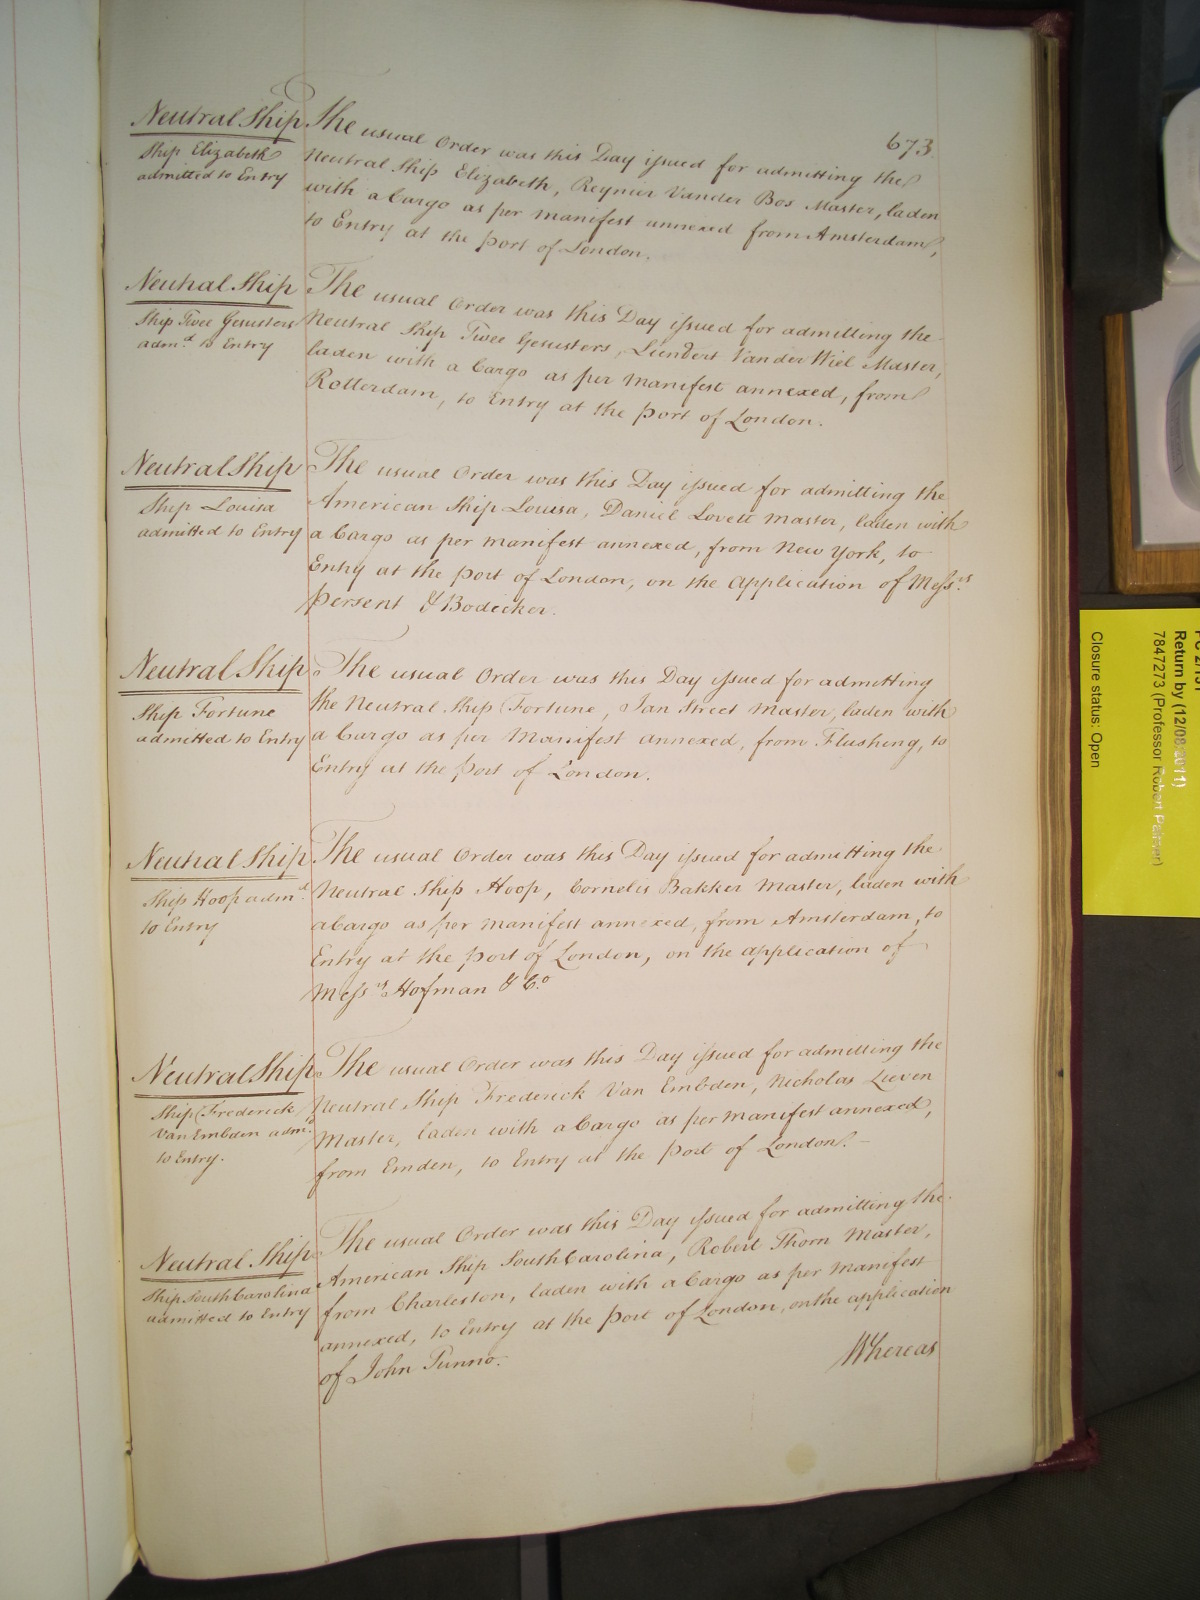 673.
Neutral Ship
Ship Elizabeth
admitted to Entry
The usual Order was this Day issued for admitting the
Neutral Ship Elizabeth, Reynier Vander Bos Master, laden
with a Cargo as per Manifest annexed from Amsterdam,
to Entry at the Port of London.
Neutral Ship
Ship Twee Gesusters
adm.d to Entry
The usual Order was this Day issued for admitting the
Neutral Ship Twee Gesusters, Lendert Vander Wiel Master,
laden with a Cargo as per Manifest annexed, from
Rotterdam, to Entry at the Port of London.
Neutral Ship
Ship Louisa
admitted to Entry
The usual Order was this Day issued for admitting the
American Ship Louisa, Daniel Lovett Master, laden with
a Cargo as per Manifest annexed, from New York, to
Entry at the Port of London, on the Application of Mess.rs
Persent & Bodecker.
Neutral Ship
Ship Fortune
admitted to Entry
The usual Order was this Day issued for admitting
the Neutral Ship Fortune, Jan Street Master, laden with
a Cargo as per Manifest annexed, from Flushing, to
Entry at the Port of London.
Neutral Ship
Ship Hoop adm.d
to Entry
The usual Order was this Day issued for admitting the
Neutral Ship Hoop, Cornelis Bakker Master, laden with
a Cargo as per Manifest annexed, from Amsterdam, to
Entry at the Port of London, on the application of
Mess.rs Hofman & Co.
Neutral Ship
Ship Frederick
Van Embden adm.d
to Entry.
The usual Order was this Day issued for admitting the
Neutral Ship Frederick Van Embden, Nicholas Lieven
Master, laden with a Cargo as per Manifest annexed,
from Emden, to Entry at the Port of London.
Neutral Ship
Ship South Carolina
admitted to Entry
The usual Order was this Day issued for admitting the
American Ship South Carolina, Robert Thorn Master,
from Charleston, laden with a Cargo as per Manifest
annexed, to Entry at the Port of London, on the application
of John Tunno.
Whereas
Return by (12/08/2011)
7847273 (Professor Robert Palmer)
Closure status: Open